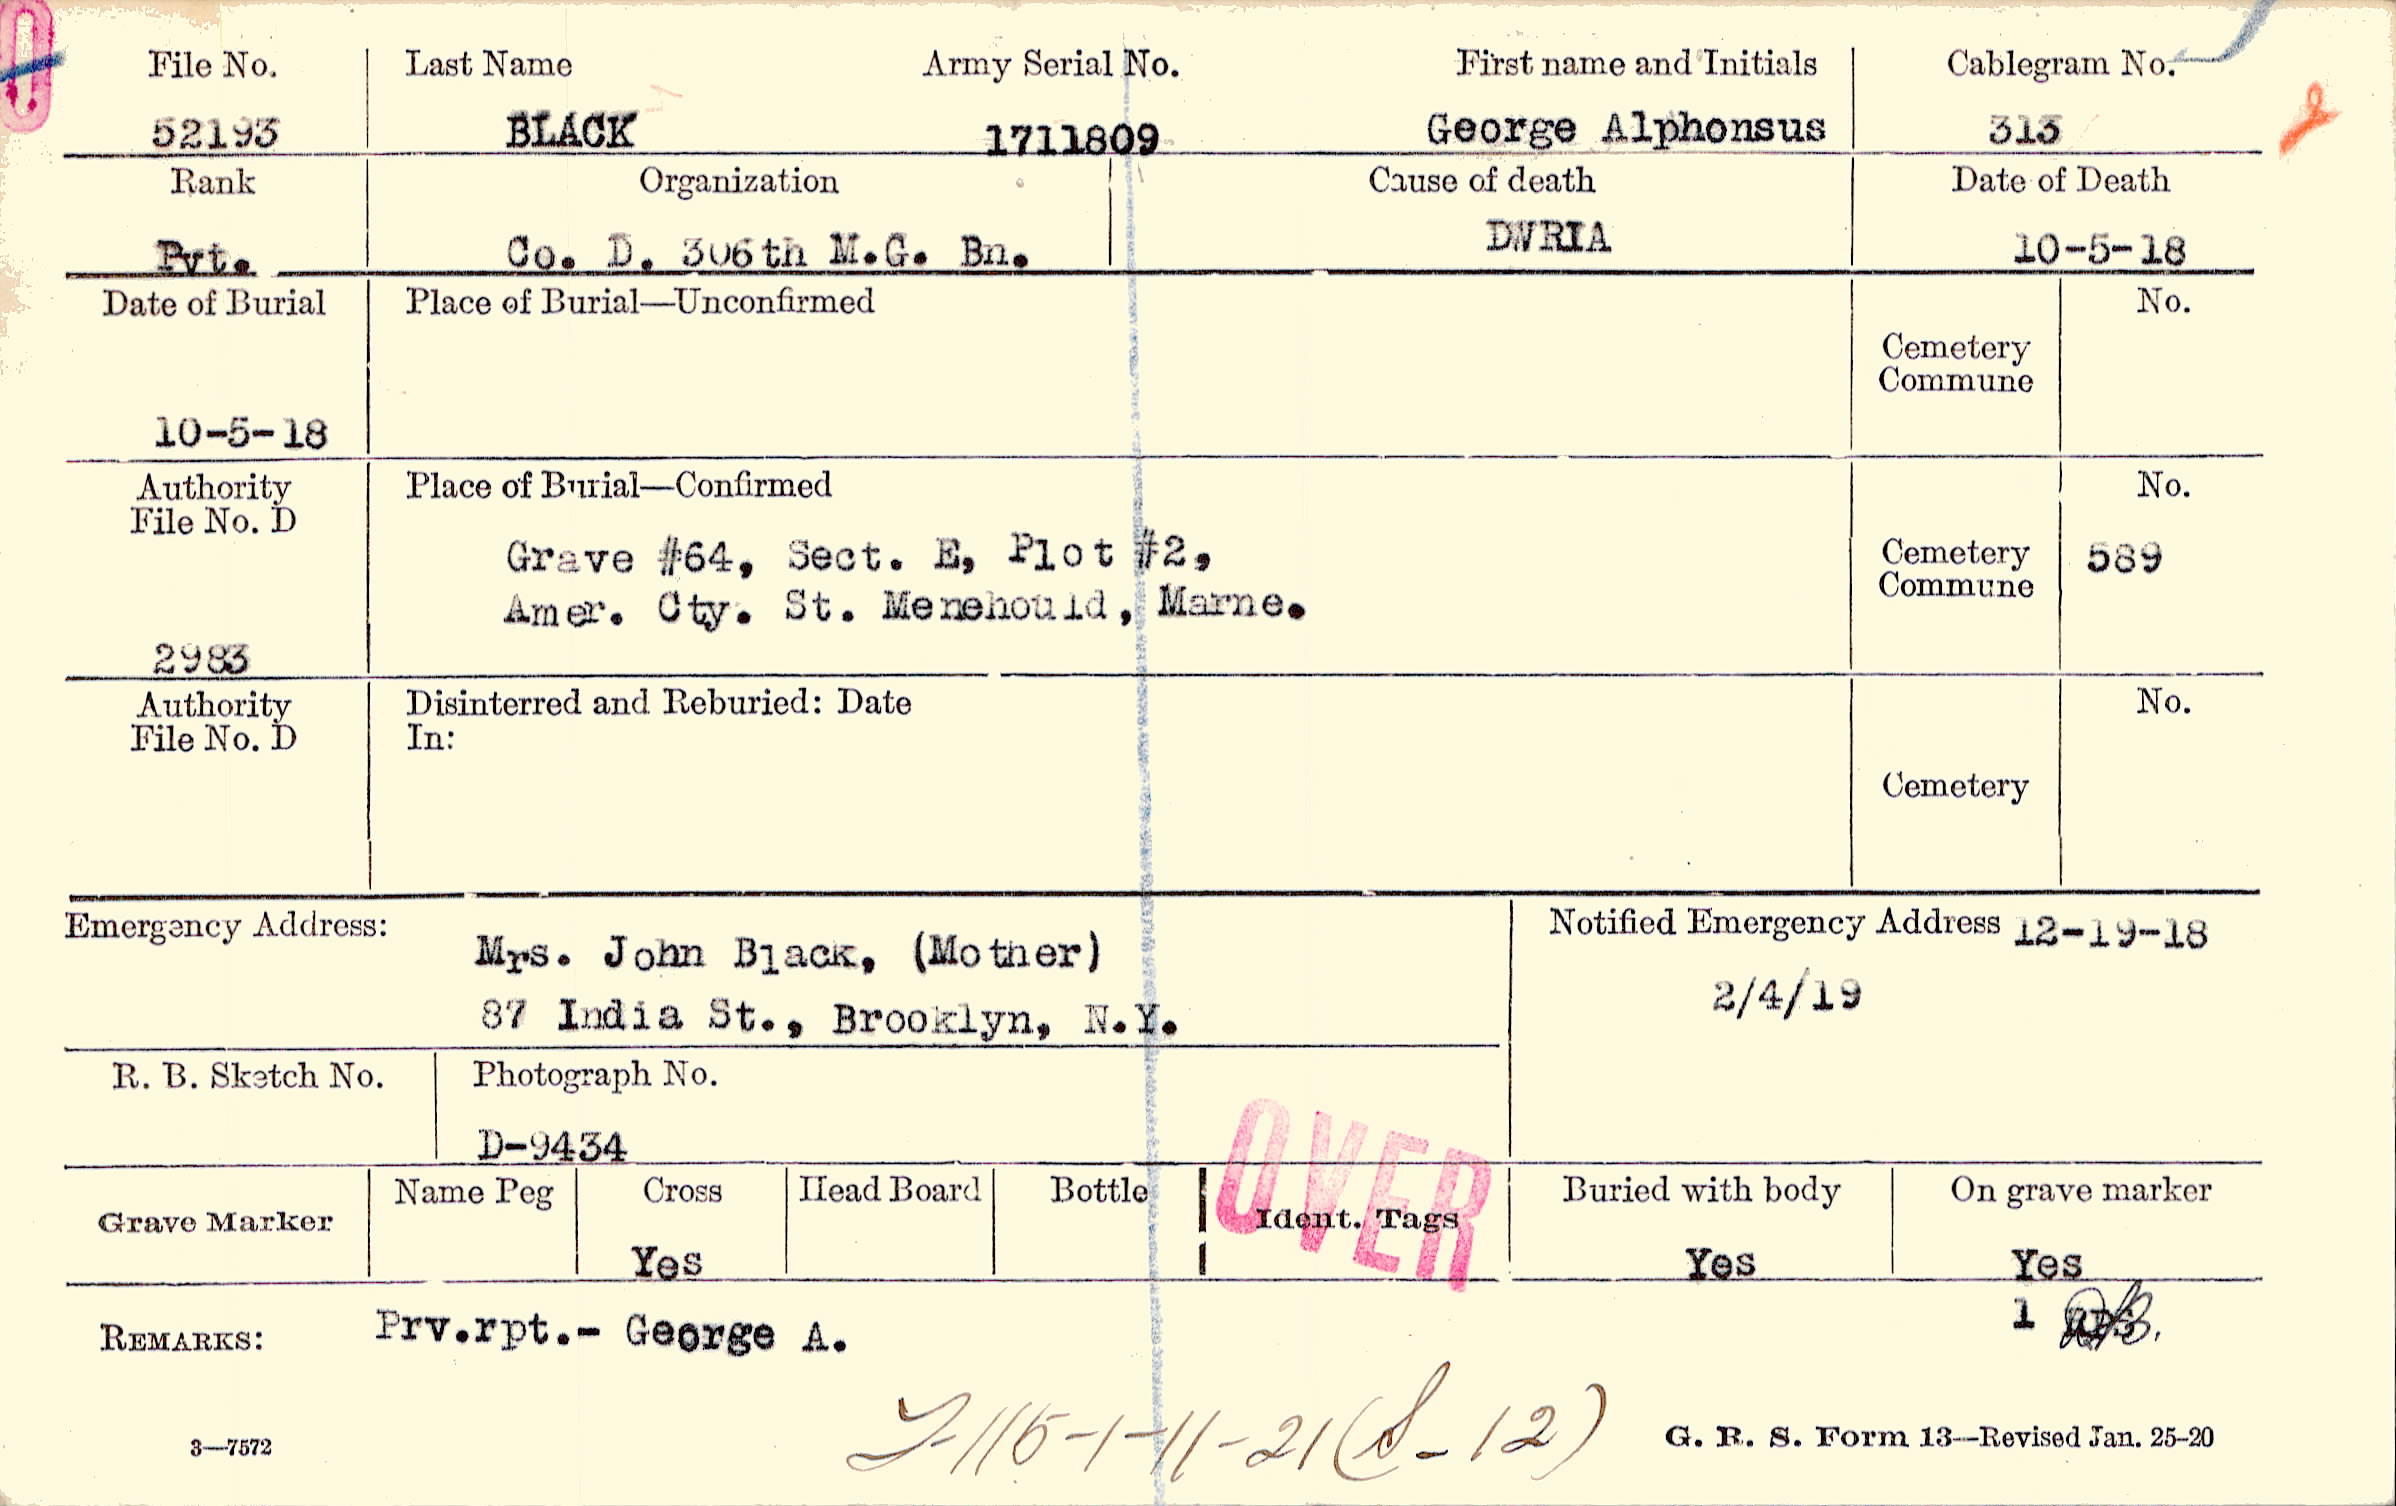 File No. Last Name Army Serial No. First name and Initials Cablegram No.
52193 BLACK 1711809 George Alphonsus 313
Rank Organization Cause of death Date of Death
Pvt. Co. D. 306th M.G. Bn. DWRIA 10-5-18
Date of Burial Place of Burial—Unconfirmed No.
Cemetery
Commune
10-5-18
Authority Place of Burial—Confirmed No.
File No. D
Grave #64, Sect. E, Plot #2, Cemetery 589
Commune
Amer. Cty. St. Menehould, Marne.
2983
Authority Disinterred and Reburied: Date No.
File No. D In:
Cemetery
Emergency Address: Notified Emergency Address 12-19-18
Mrs. John Black, (Mother)
2/4/19
87 India St., Brooklyn, N.Y.
R. B. Sketch No. Photograph No.
D-9434
OVER
Name Peg Cross Head Board Bottle Buried with body On grave marker
Grave Marker Ident. Tags
Yes Yes Yes
REMARKS: Prv.rpt.- George A. 1
-115-1-11-21 (S-12)
3—7572 G. R. S. Form 13—Revised Jan. 25-20